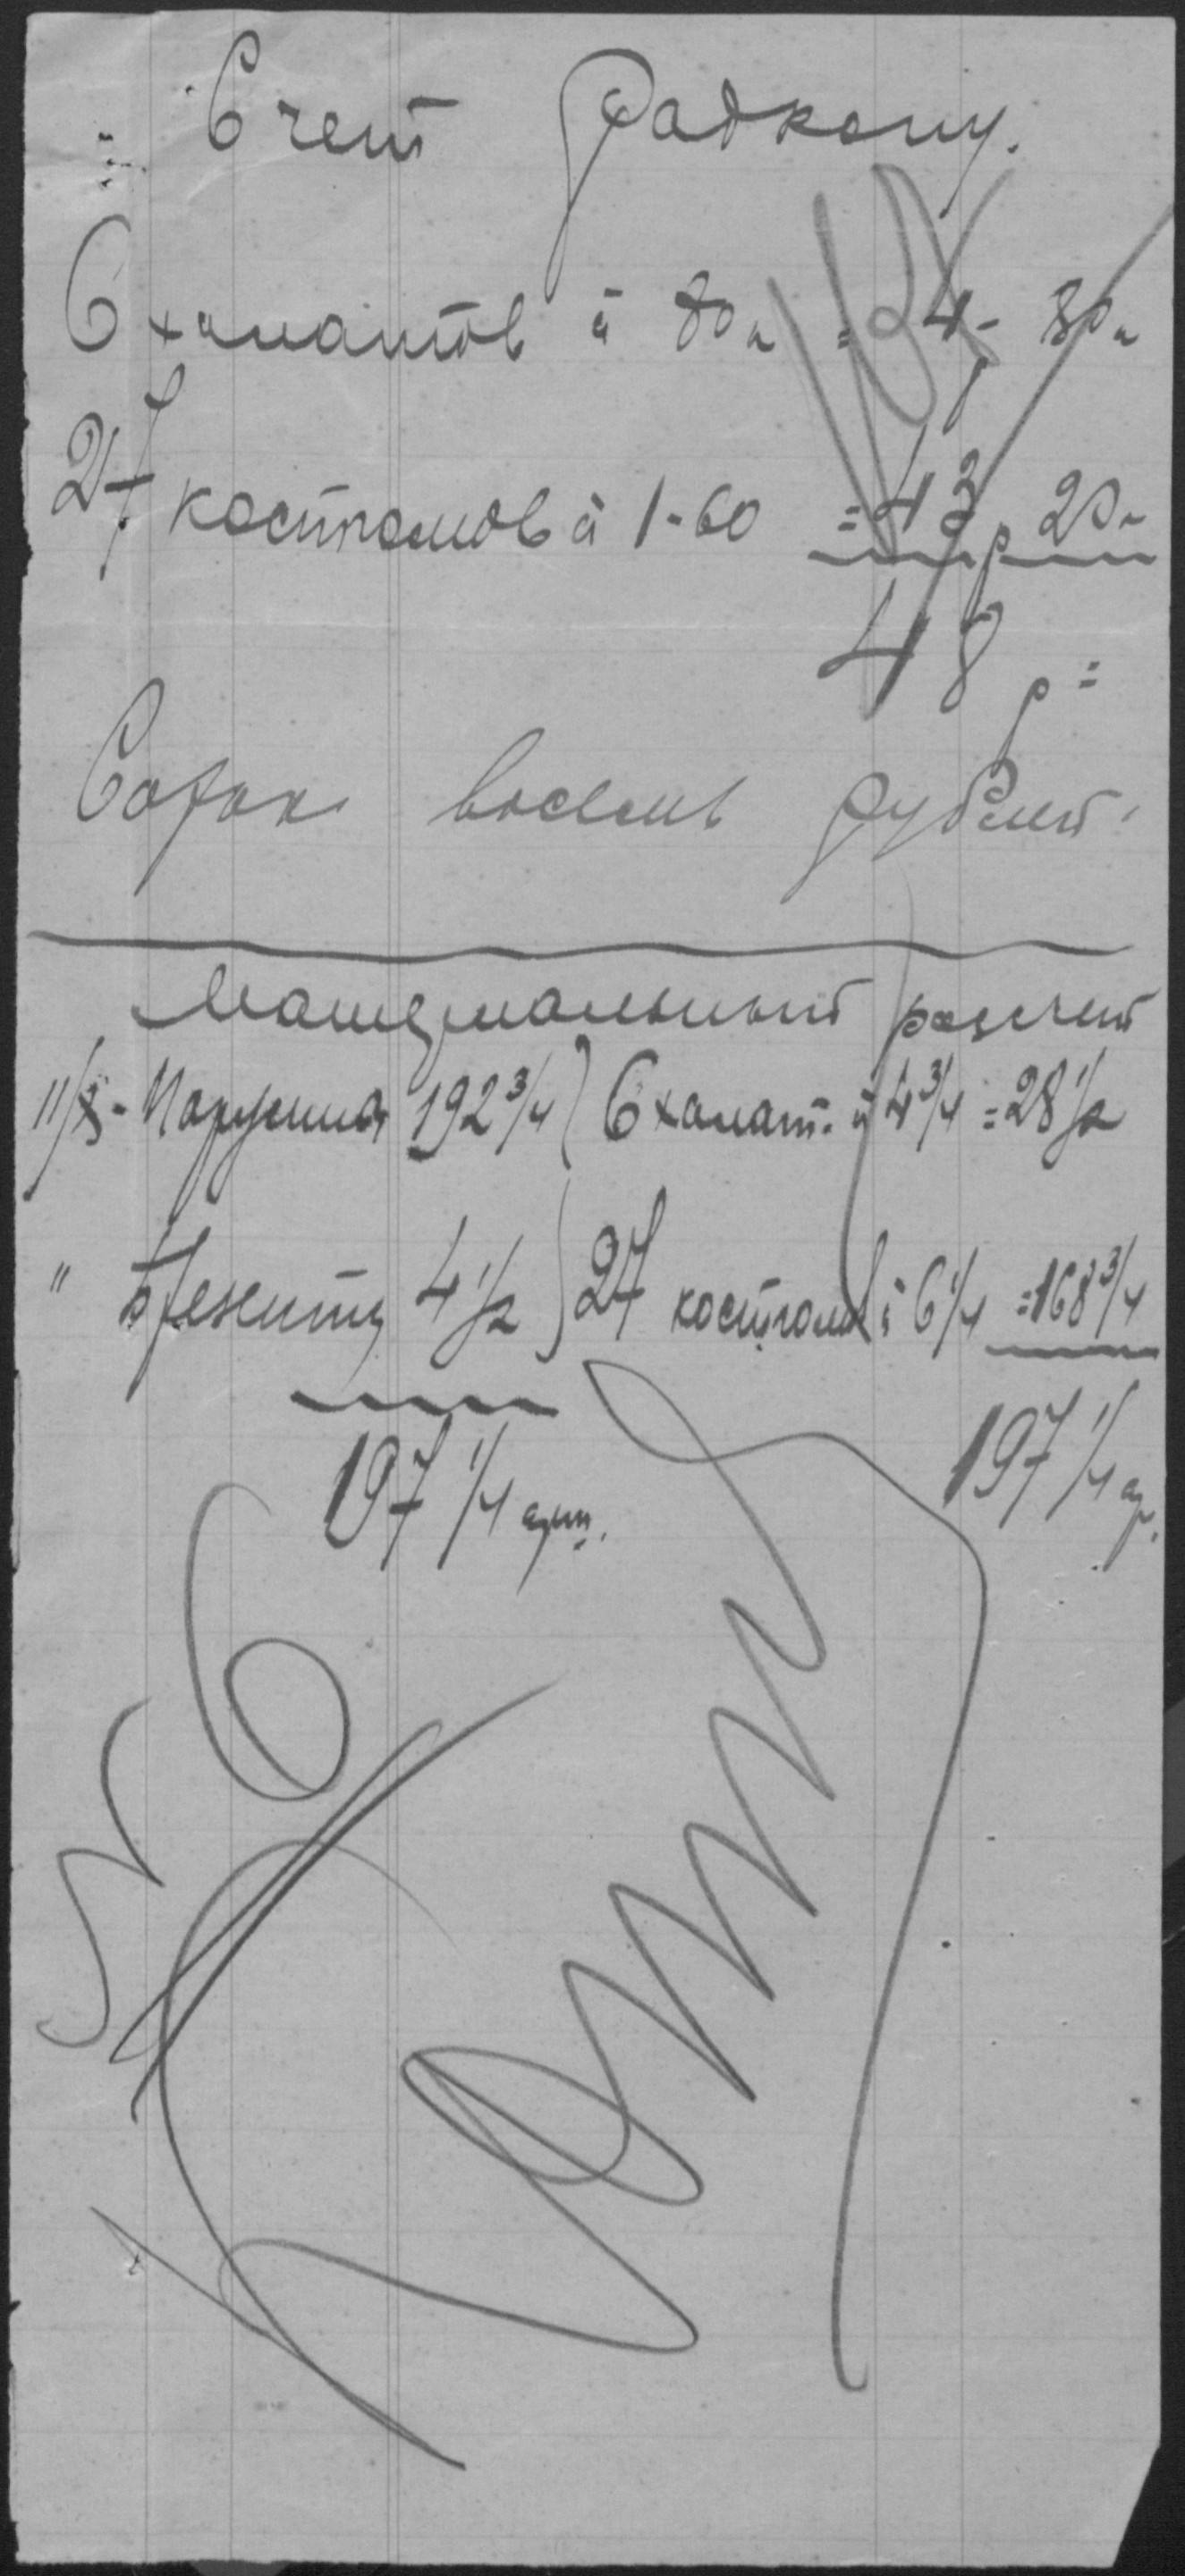 Счет Радкому.
6 халатов à 80 к = 4 р - 80 к
27 костюмов à 1-60 = 43 р 20 к
48 р =
Сорок восемь рублей.
Материальный расчет
11/X - Парусина 192 3/4 ) 6 халат. à 4 3/4 = 28 1/2
" брезенту 4 1/2 ) 27 костюмов à 6 1/4 = 168 3/4
197 1/4 арш. 197 1/4 ар.
№ 6